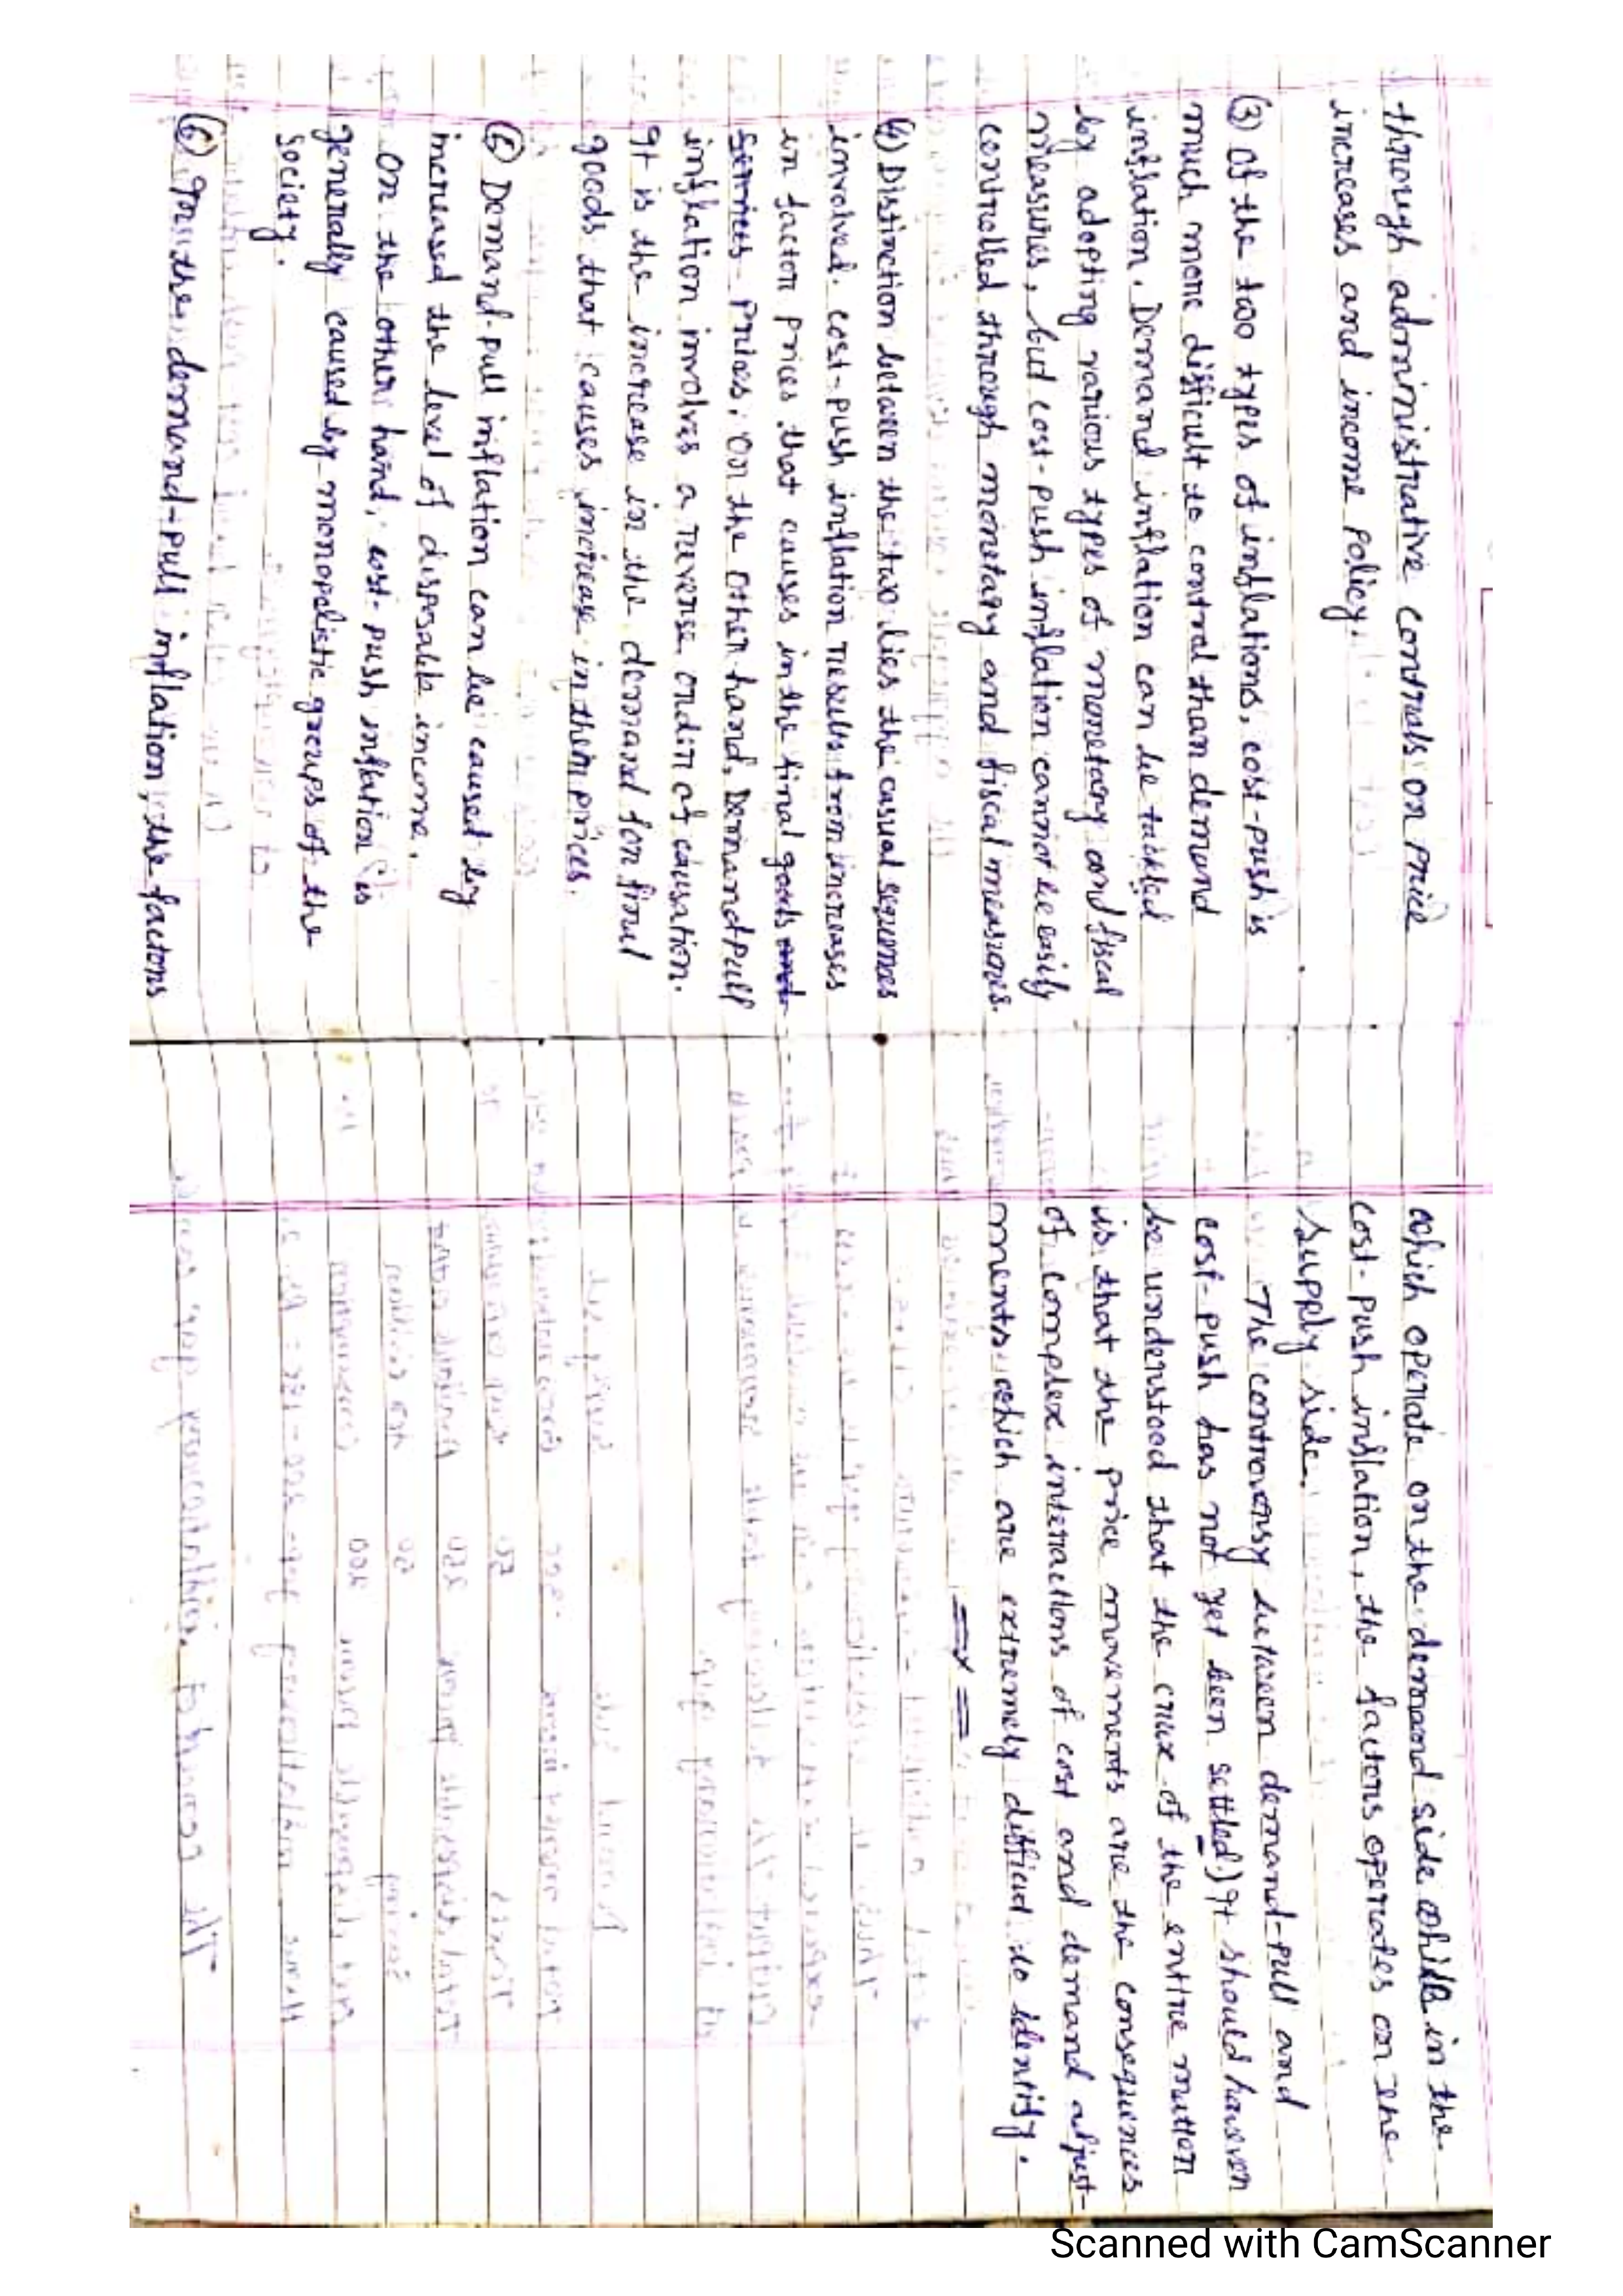 through administrative controls on price
increases and income policy.
(3) Of the two types of inflations, cost-push is
much more difficult to control than demand
inflation. Demand inflation can be tackled
by adopting various types of monetary and fiscal
measures, but cost-push inflation cannot be easily
controlled through monetary and fiscal measures.
(4) Distinction between the two lies the casual sequences
involved. cost-push inflation results from increases
in factor prices that causes in the final goods and
services prices. On the other hand, Demand pull
inflation involves a reverse order of causation.
It is the increase in the demand for final
goods that causes increase in them prices.
Demand-pull inflation can be caused by
increased the level of disposable income.
On the other hand, cost-push inflation is
generally caused by monopolistic groups of the
society.
(6) For the demand-pull inflation, the factors
which operate on the demand side while in the
cost-push inflation, the factors operates on the
supply side.
The controversy between demand-pull and
cost-push has not yet been settled) It should however
be understood that the crux of the entire matter
is that the price movements are the consequences
of complex interactions of cost and demand adjust-
ments which are extremely difficult to identify.
Scanned with CamScanner